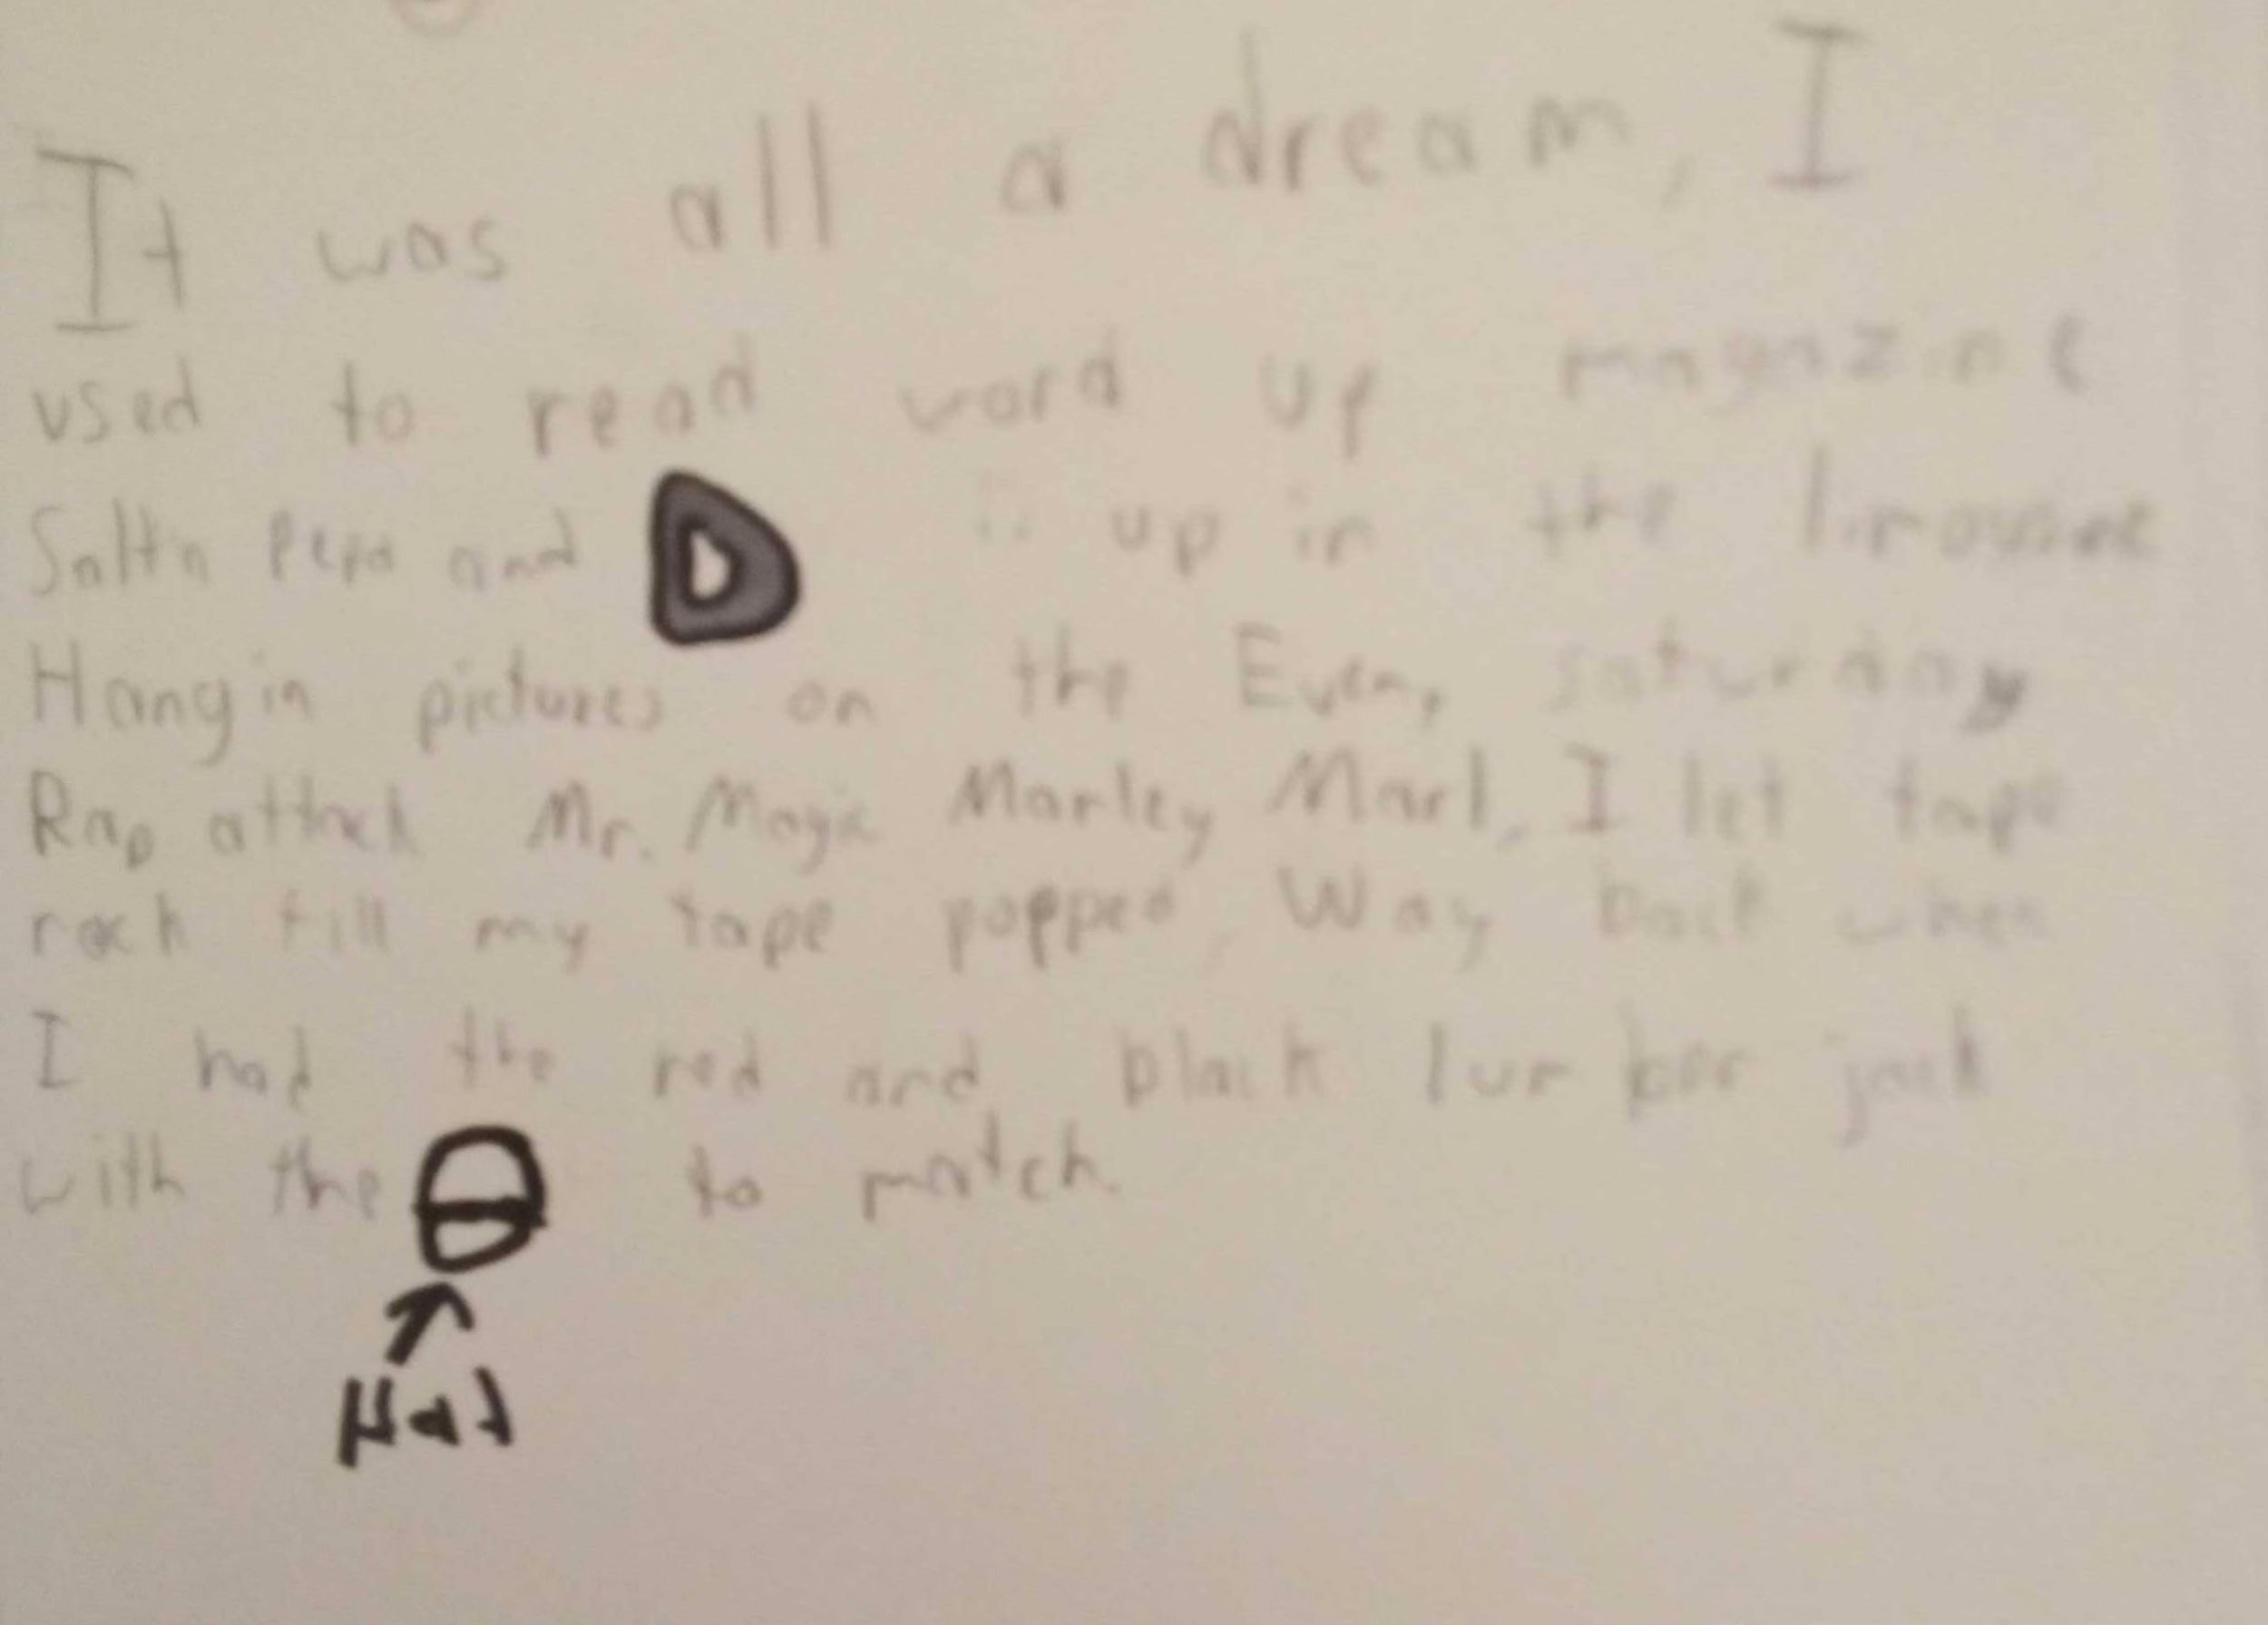 It was all a dream, I
used to read word up magazine
Salt'n Pepa and D :: up in the limousine
Hangin pictures on the Every saturday
Rap attack Mr. Magic Marley Marl, I let tape
rock till my tape popped, Way back when
I had the red and black lumber jack
with the to match.
Hat